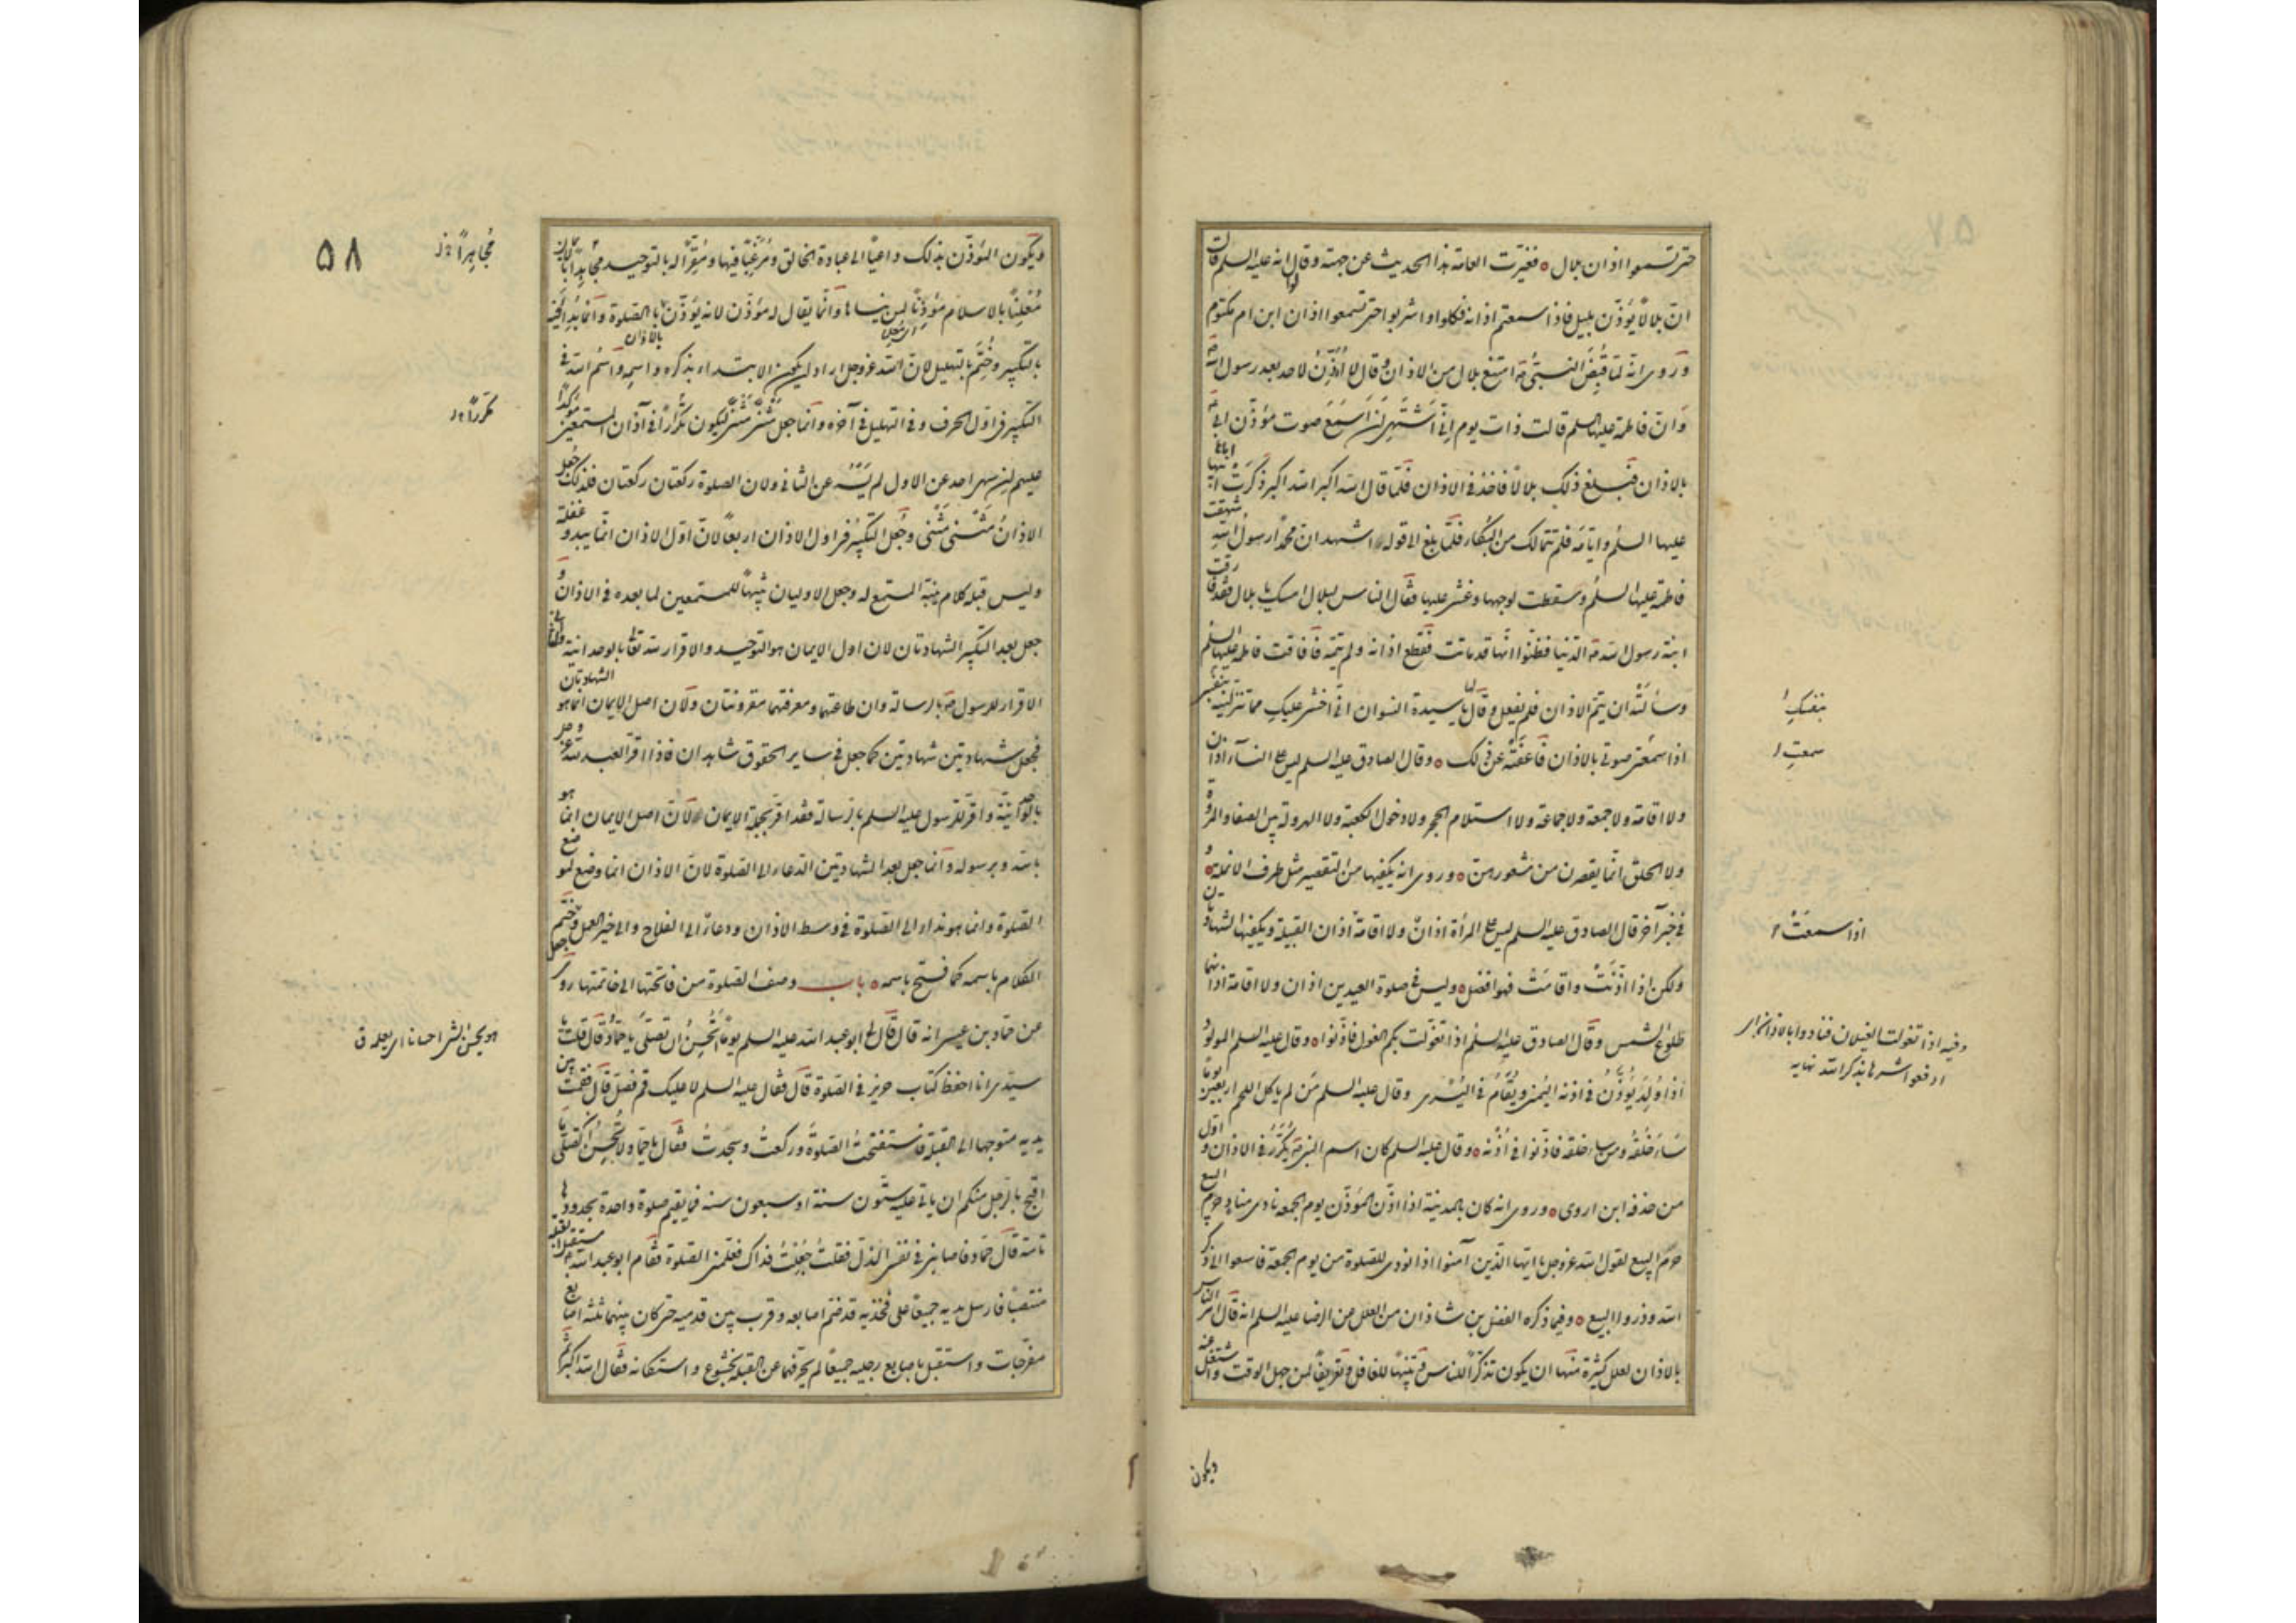 حتى تسمعوا اذان بلال ه فغيرت العامة هذا الحديث عن جهته وقالوا انه عليه السلم قال
ان بلالاً يؤذن بليل فاذا سمعتم اذانه فكلوا واشربوا حتى تسمعوا اذان ابن ام مكتوم
وروى انه لما قبض النبى ص امتنع بلال من الاذان وقال لا اؤذن لاحد بعد رسول الله ص
وان فاطمة عليها السلم قالت ذات يوم انى اشتهى ان اسمع صوت مؤذن ابى ص
بالاذان فبلغ ذلك بلالاً فاخذ فى الاذان فلما قال الله اكبر الله اكبر ذكرت اباها
عليها السلم وايامه فلم تتمالك من البكاء فلما بلغ الى قوله اشهد ان محمداً رسول الله شهقت
فاطمة عليها السلم وسقطت لوجهها وغشى عليها فقال الناس لبلال امسك يا بلال فقد فارقت
ابنة رسول الله ص الدنيا فظنوا انها قد ماتت فقطع اذانه ولم يتمه فافاقت فاطمة عليها السلم
وسألته ان يتم الاذان فلم يفعل وقال لها يا سيدة النسوان انى اخشى عليك مما تنزلينه بنفسك
اذا سمعتى صوتى بالاذان فاعفته عن ذلك ه وقال الصادق عليه السلم ليس على النسآء اذان
ولا اقامة ولا جمعة ولا جماعة ولا استلام الحجر ولا دخول الكعبة ولا الهرولة بين الصفا والمروة
ولا الحلق انما يقصرن من شعورهن ه وروى انه يكفيها من التقصير مثل طرف الانملة ه و
فى خبر آخر قال الصادق عليه السلم ليس على المرأة اذان ولا اقامة اذا سمعت اذان القبيلة ويكفيها الشهادتان
ولكن اذا اذنت واقامت فهو افضل ه وليس فى صلوة العيدين اذان ولا اقامة اذانهما
طلوع الشمس وقال الصادق عليه السلم اذا تغولت بكم الغول فاذنوا ه وقال عليه السلم المولود
اذا ولد يؤذن فى اذنه اليمنى ويقام فى اليسرى وقال عليه السلم من لم ياكل اللحم اربعين يوماً
ساء خلقه ومن ساء خلقه فاذنوا فى اذنه ه وقال عليه السلم كان اسم النبى ص يكرر فى الاذان واول
من حذفه ابن اروى ه وروى انه كان بالمدينة اذا اذن المؤذن يوم الجمعة نادى مناد حرم البيع
حرم البيع لقول الله عز وجل يا ايها الذين آمنوا اذا نودى للصلوة من يوم الجمعة فاسعوا الى ذكر
الله وذروا البيع ه وفيما ذكره الفضل بن شاذان من العلل عن الرضا عليه السلم انه قال امر الناس
بالاذان لعلل كثيرة منها ان يكون تذكيراً للناس وتنبيهاً للغافل وتعريفاً لمن جهل الوقت واشتغل عنه
ويكون
بنفسك
سمعت
اذا سمعت
وفيه اذا تغولت الغيلان فنادوا بالاذان اى
ادفعوا شرها بذكر الله نهايه
٥٨
ويكون المؤذن بذلك داعياً الى عبادة الخالق ومرغباً فيها ومقراً له بالتوحيد مجاهراً بالايمان
معلناً بالاسلام مؤذناً لمن ينساها وانما يقال له مؤذن لانه يؤذن بالاذان بالصلوة وانما بدأ فيه
بالتكبير وختم بالتهليل لان الله عز وجل اراد ان يكون الابتداء بذكره واسمه واسم الله فى
التكبير فى اول الحرف وفى التهليل فى آخره وانما جعل مثنى مثنى ليكون تكراراً فى آذان المستمعين مؤكداً
عليهم ان سهى احد عن الاول لم يسه عن الثانى ولان الصلوة ركعتان ركعتان فلذلك جعل
الاذان مثنى مثنى وجعل التكبير فى اول الاذان اربعاً لان اول الاذان انما يبدو غفلة
وليس قبله كلام ينبه المستمع له وجعل الاوليان تنبيهاً للمستمعين لما بعده فى الاذان و
جعل بعد التكبير الشهادتان لان اول الايمان هو التوحيد والاقرار لله تعالى بالوحدانية والثانى
الاقرار للرسول ص بالرسالة وان طاعتهما ومعرفتهما مقرونتان ولان اصل الايمان انما هو الشهادتان
فجعل شهادتين شهادتين كما جعل فى ساير الحقوق شاهدان فاذا اقر العبد لله عز وجل
بالوحدانية واقر للرسول عليه السلم بالرسالة فقد اقر بجملة الايمان لان اصل الايمان انما هو
بالله وبرسوله وانما جعل بعد الشهادتين الدعاء الى الصلوة لان الاذان انما وضع لموضع
الصلوة وانما هو نداء الى الصلوة فى وسط الاذان ودعاء الى الفلاح والى خير العمل وجعل ختم
الكلام باسمه كما فتح باسمه ه باب وصف الصلوة من فاتحتها الى خاتمتها روى
عن حماد بن عيسى انه قال قال لى ابو عبد الله عليه السلم يوماً أتحسن ان تصلى يا حماد قال قلت يا
سيدى انا احفظ كتاب حريز فى الصلوة قال فقال عليه السلم لا عليك قم فصل قال فقمت بين
يديه متوجهاً الى القبلة فاستفتحت الصلوة وركعت وسجدت فقال يا حماد لا تحسن ان تصلى ما
اقبح بالرجل منكم ان ياتى عليه ستون سنة او سبعون سنة فما يقيم صلوة واحدة بحدودها
تامة قال حماد فاصابنى فى نفسى الذل فقلت جعلت فداك فعلمنى الصلوة فقام ابو عبد الله ع مستقبل القبلة
منتصباً فارسل يديه جميعاً على فخذيه قد ضم اصابعه وقرب بين قدميه حتى كان بينهما ثلثة اصابع
مفرجات واستقبل باصابع رجليه جميعاً لم يحرفهما عن القبلة بخشوع واستكانة فقال الله اكبر ثم
مجاهراً